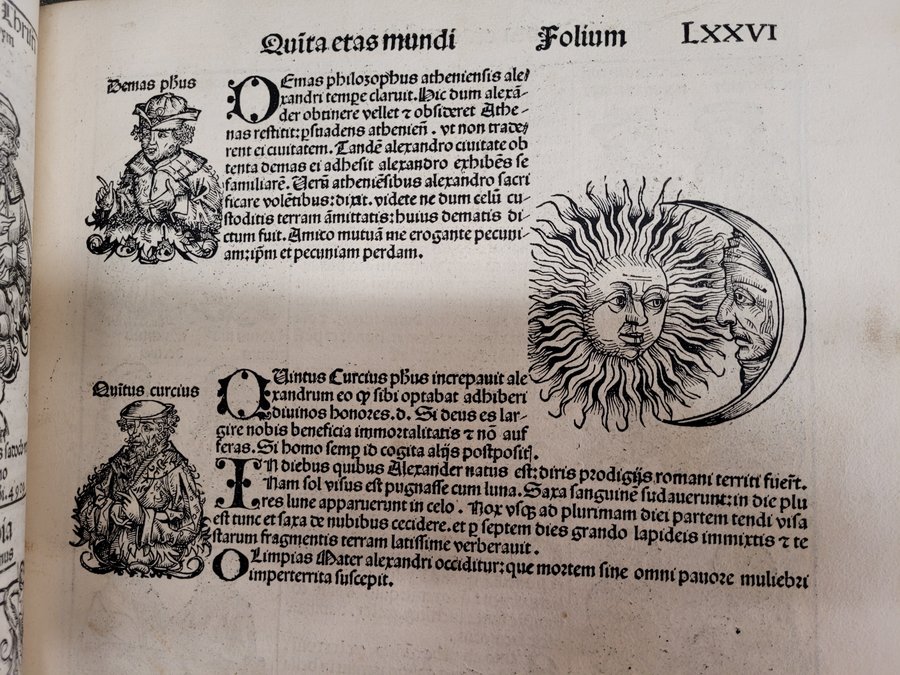 Quīta etas mundi Folium LXXVI
Demas ph̄us
DEmas philozophus atheniensis ale⸗
xandri tempe claruit. Hic dum alexā⸗
der obtinere vellet ⁊ obsideret Athe⸗
nas restitit: p̱suadens atheniēn̄. vt non trade⸗
rent ei ciuitatem. Tandē alexandro ciuitate ob
tenta demas ei adhesit alexandro exhibēs se
familiarē. Verū atheniēsibus alexandro sacri
ficare volētibus: dixit. videte ne dum celū cu⸗
stoditis terram āmittatis: huius dematis di⸗
ctum fuit. Amico mutuā me erogante pecuni⸗
am: ip̄m et pecuniam perdam.
Quītus curcius
QUintus Curcius ph̄us increpauit ale
xandrum eo ꝙ sibi optabat adhiberi
diuinos honores. d. Si deus es lar⸗
gire nobis beneficia immortalitatis ⁊ nō auf
feras. Si homo semp̱ id cogita alijs postpositꝭ.
IN diebus quibus Alexander natus est: diris prodigijs romani territi fuer̄t.
Nam sol visus est pugnasse cum luna. Saxa sanguinē sudauerunt: in die plu
res lune apparuerunt in celo. Nox vsqꝫ ad plurimam diei partem tendi visa
est tunc et saxa de nubibus cecidere. et p̱ septem dies grando lapideis immixtis ⁊ te
starum fragmentis terram latissime verberauit.
OLimpias Mater alexandri occiditur: que mortem sine omni pauore muliebri
imperterrita suscepit.